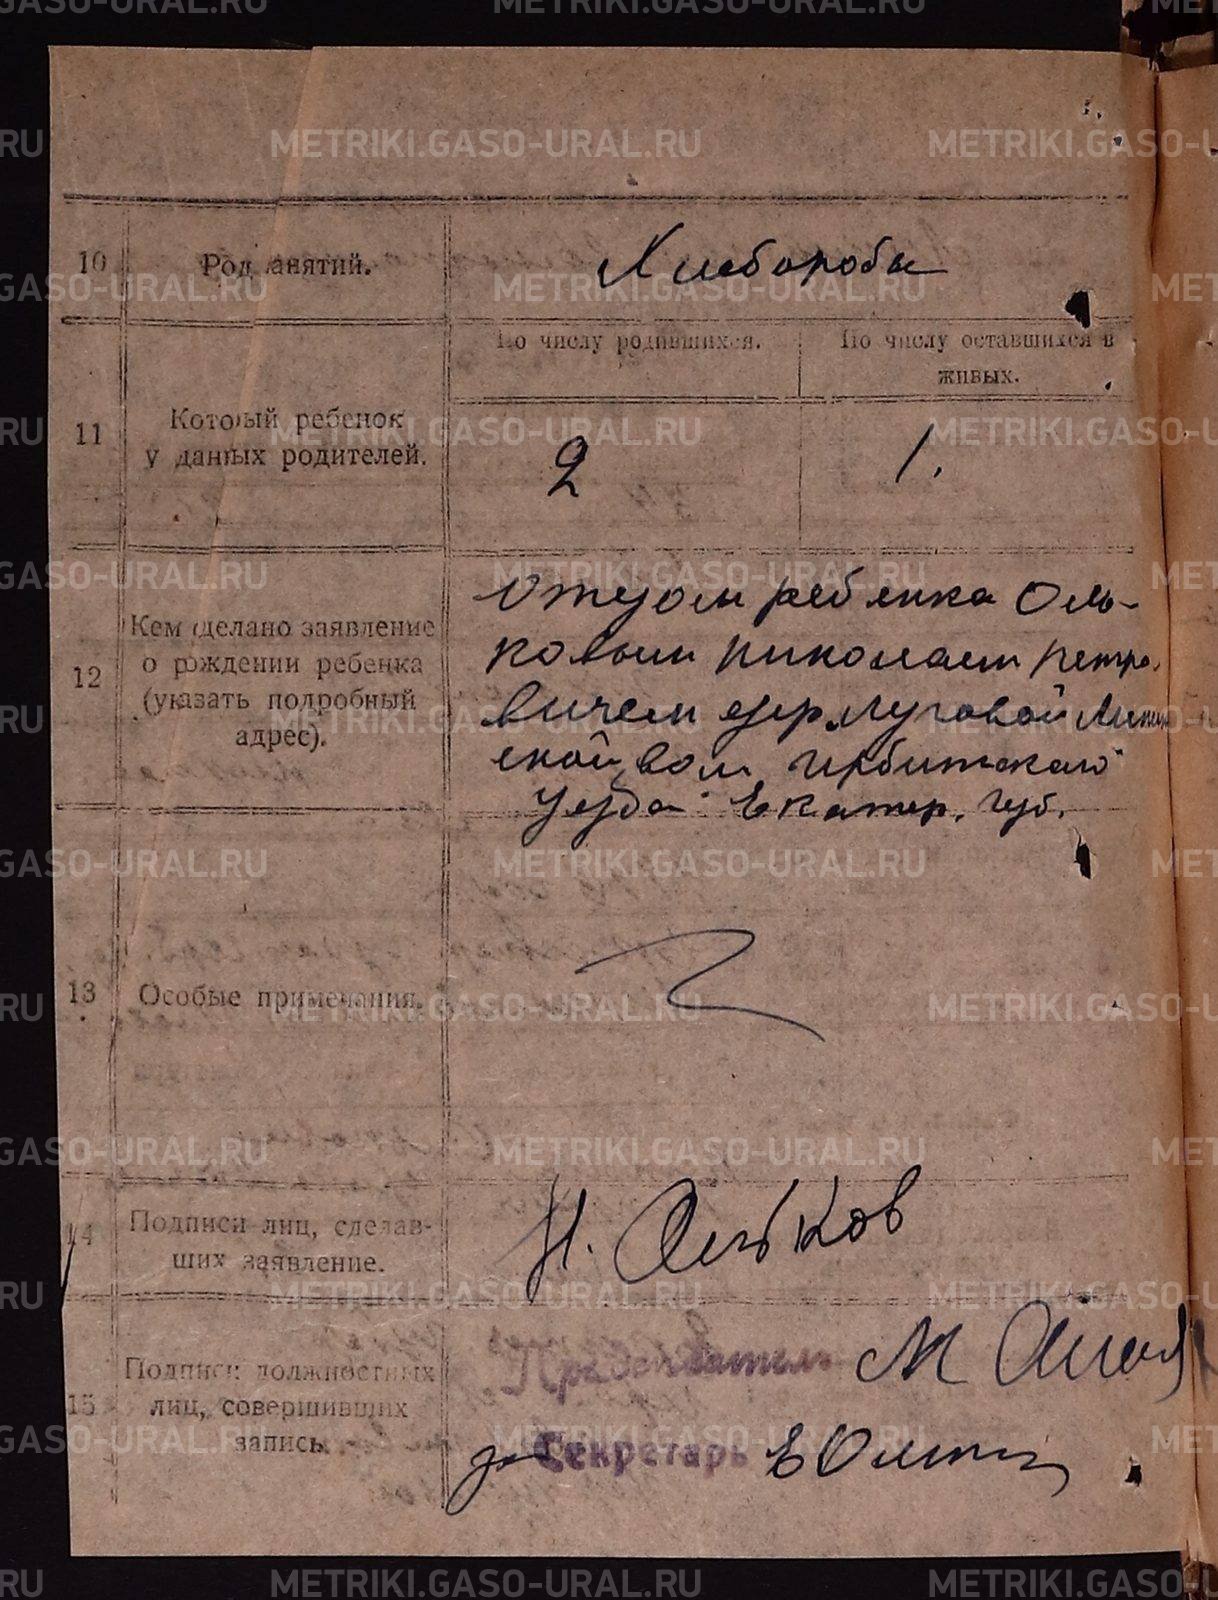 10 Род занятий. Хлеборобы
По числу родившихся. По числу оставшихся в
живых.
11 Который ребенок
у данных родителей. 2 1.
12 Кем сделано заявление
о рождении ребенка
(указать подробный
адрес).
Отцом ребенка Оль-
ковым Николаем Петро
вичем дер. Луговой
ской вол Ирбитскаго
уезда Екатер. губ.
13 Особые примечания.
14 Подписи лиц, сделав-
ших заявление.
Н. Ольков
15 Подписи должностных
лиц, совершивших
запись.
Председатель М
за Секретарь Е
METRIKI.GASO-URAL.RU